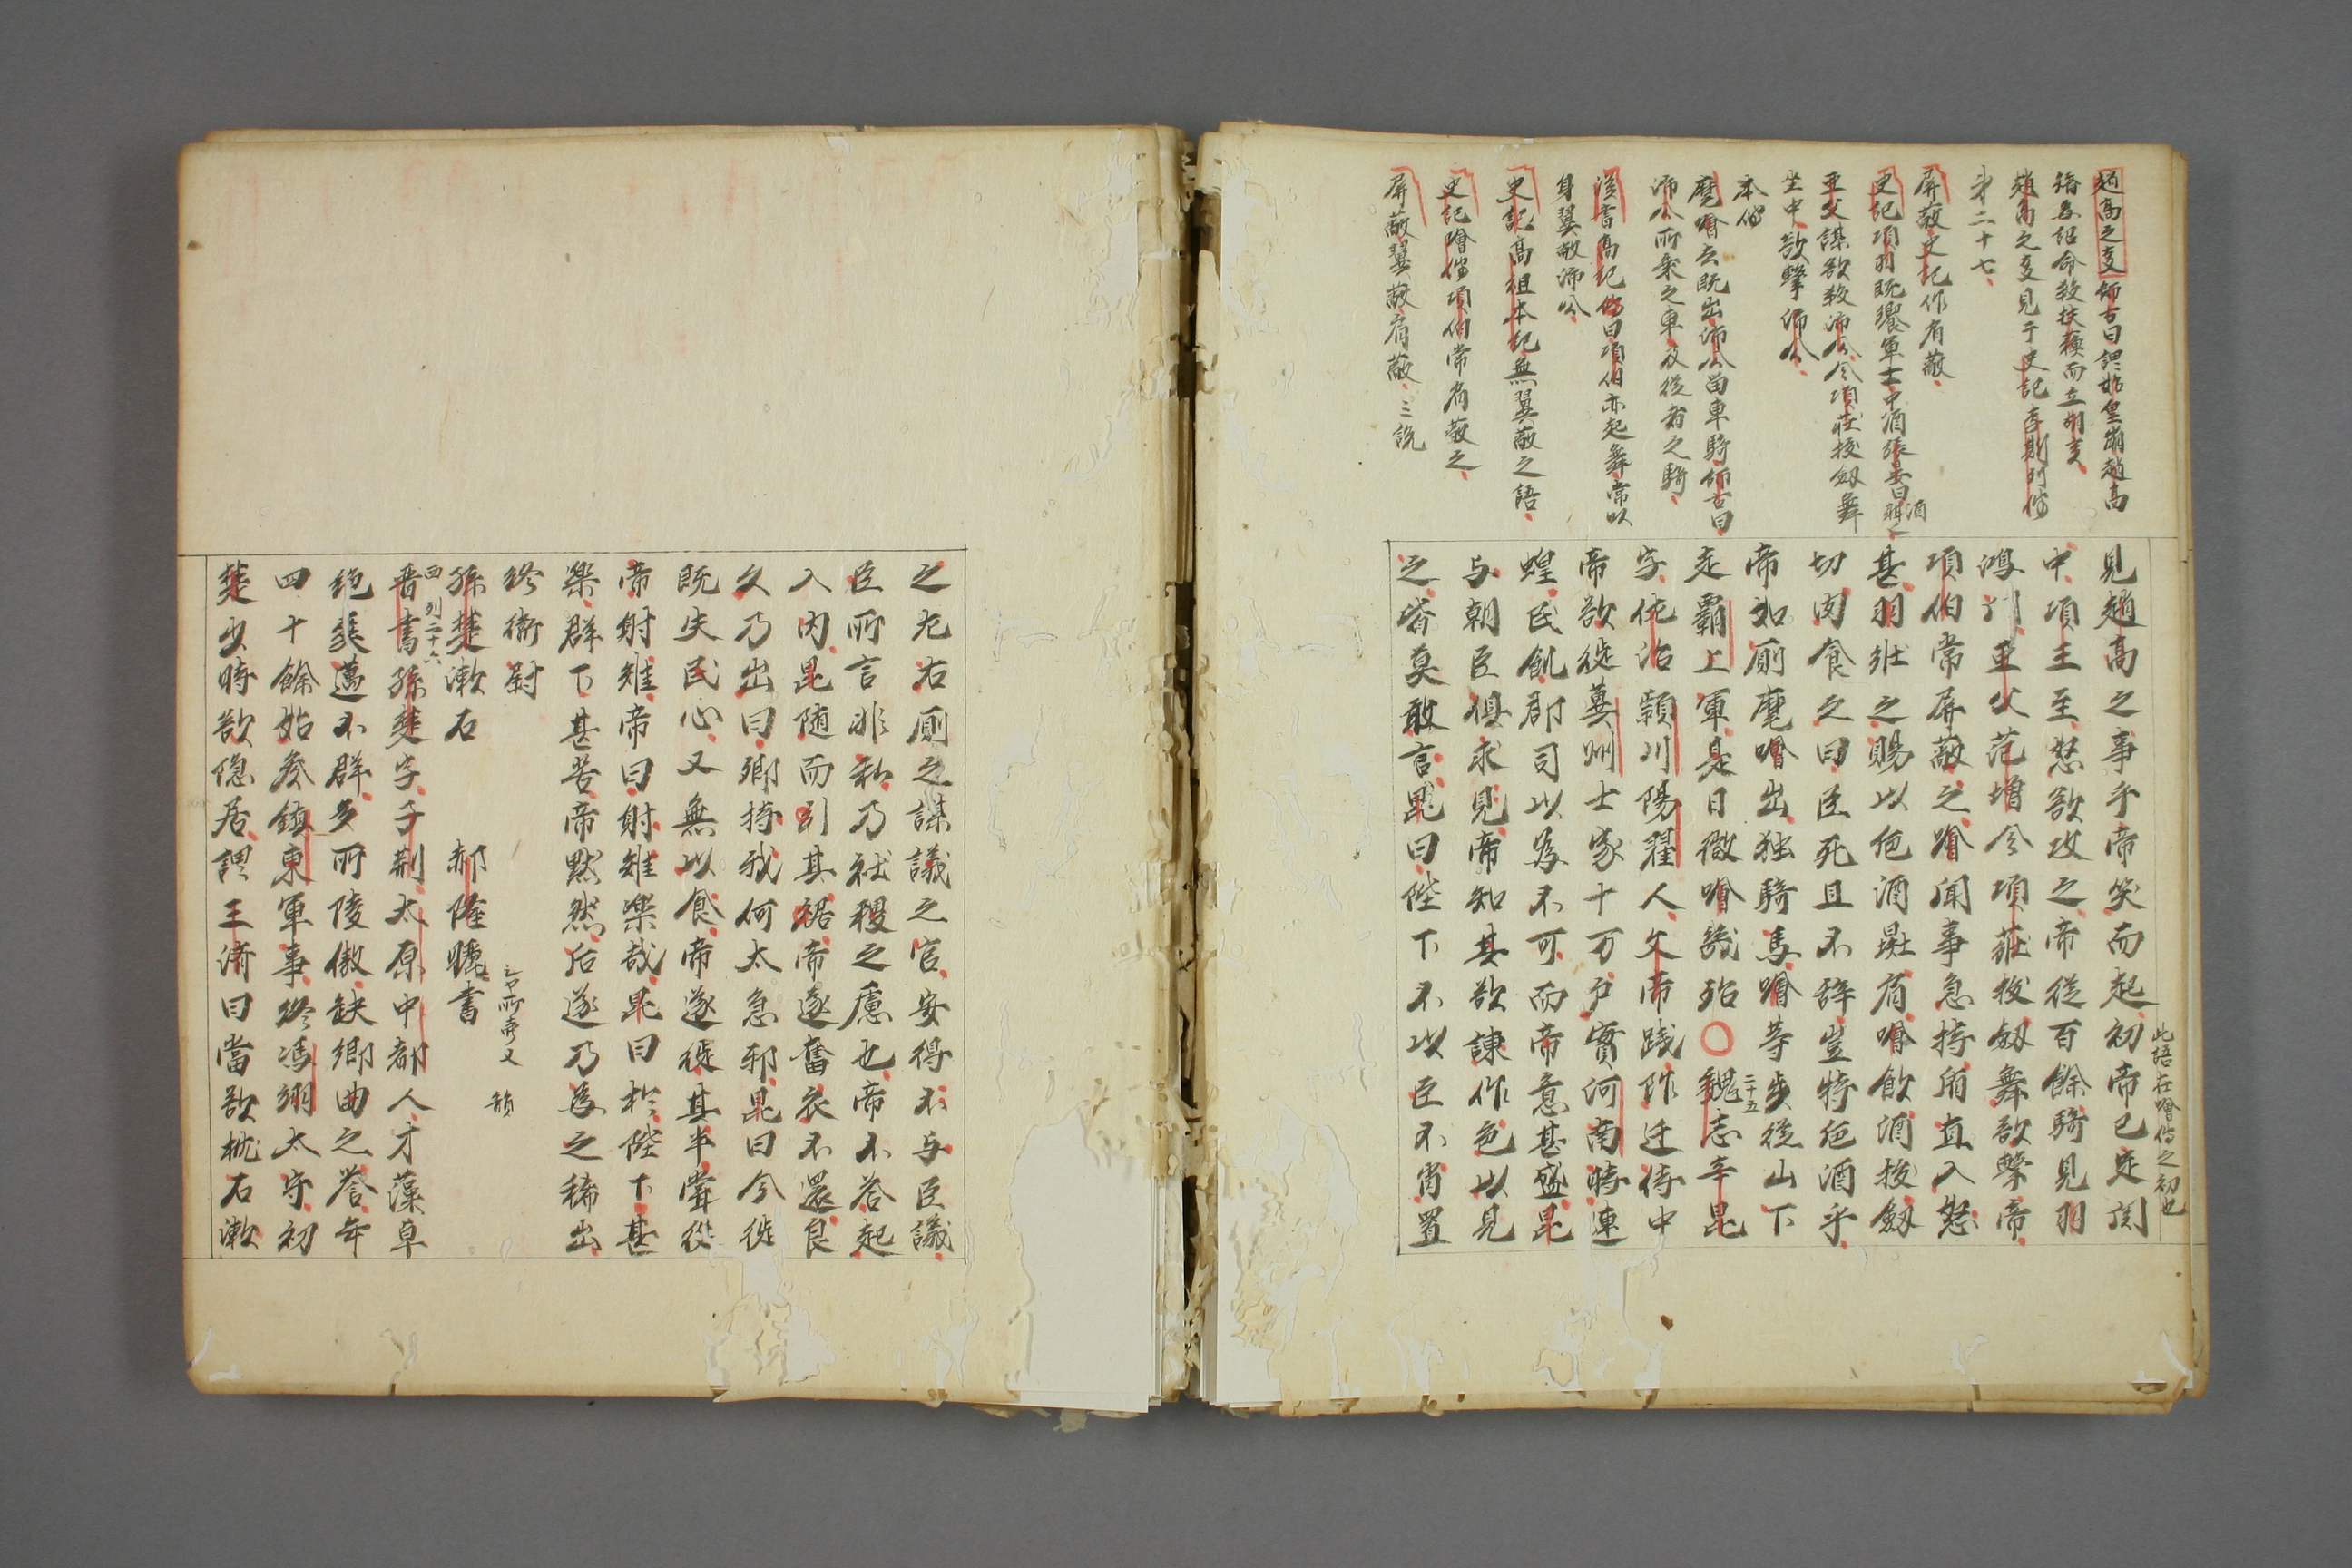 趙高之事師古曰謂始皇崩趙高
矯為詔命殺扶蘓而立胡亥
趙高之事見于史記李斯列傳
第二十七
屏蔽史記作肩蔽
史記項羽既饗軍士中酒
亞父謀欲殺沛公令項莊拔劔舞
坐中欲擊沛公
本傳
麾噲去既出沛公留車騎師古曰
沛公所乘之車及從者之騎
漢書高紀傳曰項伯亦起舞常以
身翼蔽沛公
史記高祖本紀無翼蔽之語
史記噲傳項伯常肩蔽之
屏蔽翼蔽肩蔽三說
此語在噲傳之初也
見趙高之事乎帝笑而起初帝已定関
中項王至怒欲攻之帝從百餘騎見羽
鴻門亞父范增令項莊拔劔舞欲擊帝
項伯常屏蔽之噲聞事急持盾直入怒
甚羽壯之賜以卮酒彘肩噲飲酒拔劔
切肉食之曰臣死且不辞豈特卮酒乎
帝如厠麾噲出独騎馬噲等步從山下
走霸上軍是日微噲幾殆〇魏志二十五辛毘
字佐治潁川陽翟人文帝践阼迁侍中
帝欲徙冀州士家十万戸實河南時連
蝗民飢郡司以為不可而帝意甚盛毘
与朝臣俱求見帝知其欲諫作色以見
之皆莫敢言毘曰陛下不以臣不肖置
之左右厠之謀議之官安得不与臣議
臣所言非私乃社稷之慮也帝不荅起
入内毘随而引其裾帝遂奮衣不還良
久乃出曰卿持我何太急邪毘曰今徙
既失民心又無以食帝遂徙其半嘗從
帝射雉帝曰射雉樂哉毘曰於陛下甚
樂群下甚苦帝默然后遂乃為之稀出
終衛尉
孫楚漱石　郝隆曬書
西
列二十六
晋書孫楚字子荊太原中都人才藻卓
絶爽邁不群多所陵傲缺郷曲之誉年
四十餘始參鎮東軍事終馮翊太守初
楚少時欲隠居謂王済曰當欲枕石漱